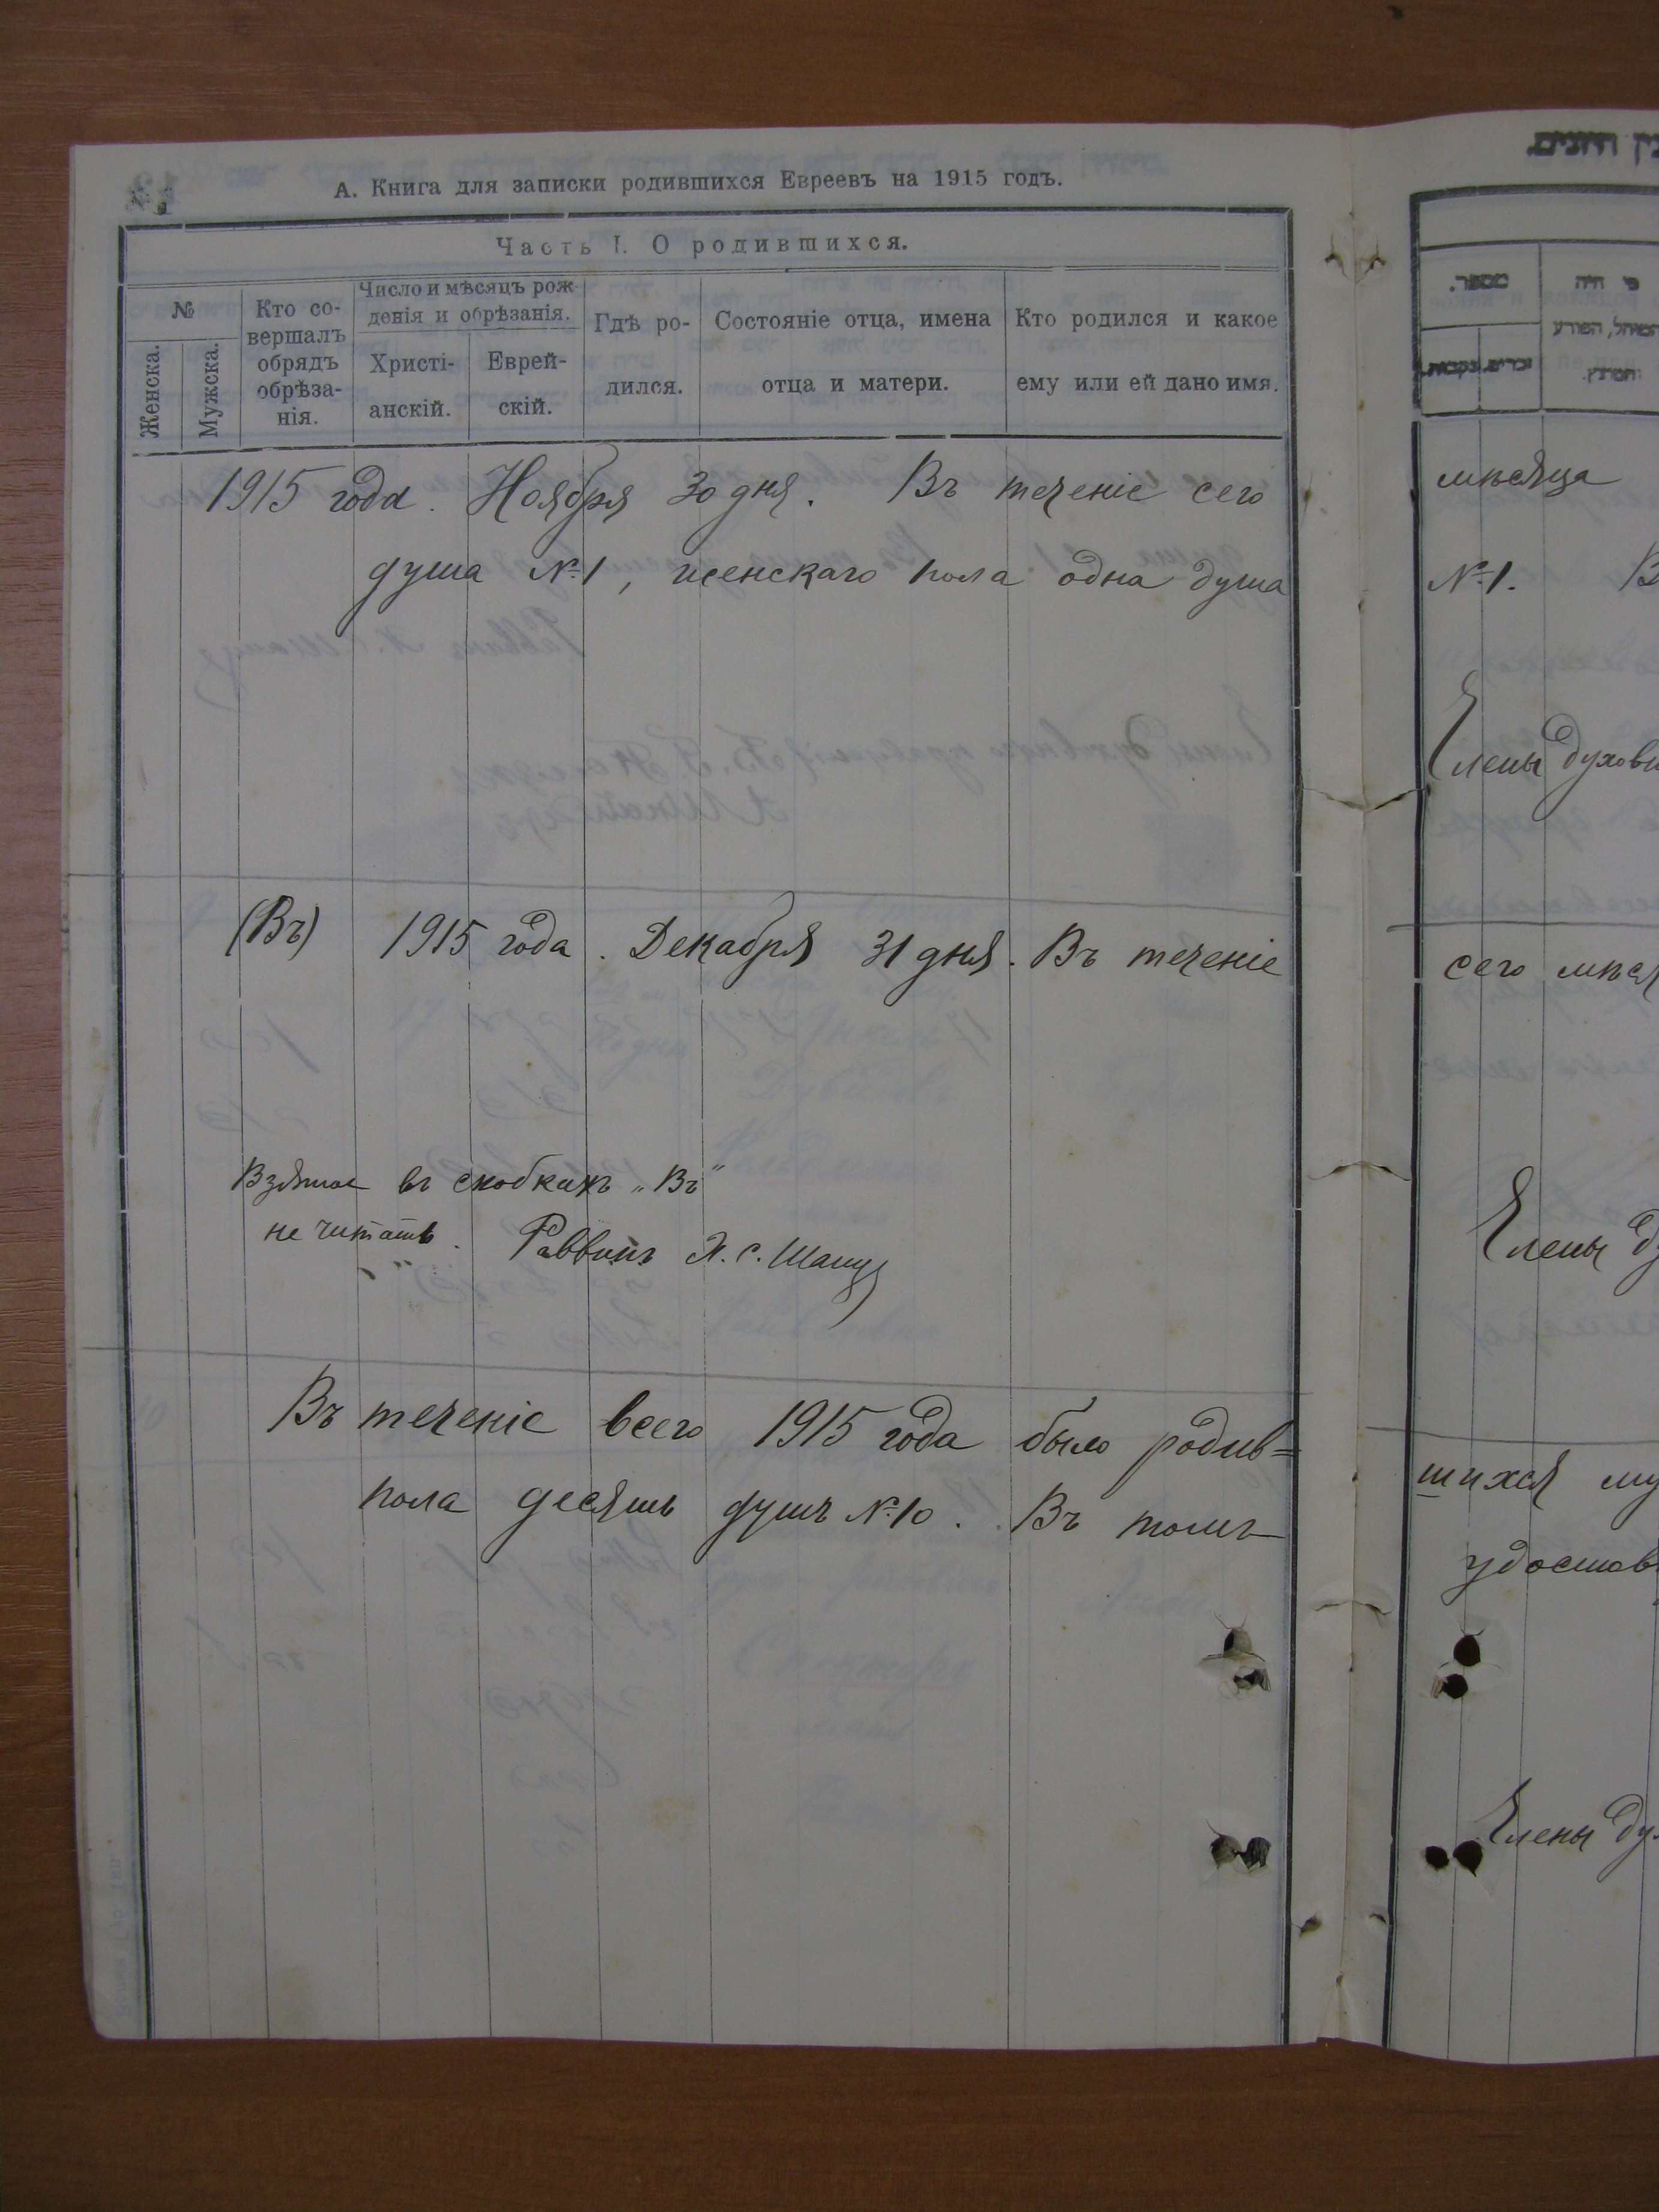 А. Книга для записки родившихся Евреевъ на 1915 годъ.
Часть I. О родившихся.
№
Женска.
Мужска.
Кто со-
вершалъ
обрядъ
обрѣза-
нія.
Число и мѣсяцъ рож-
денія и обрѣзанія.
Христі-
анскій.
Еврей-
скій.
Гдѣ ро-
дился.
Состояніе отца, имена
отца и матери.
Кто родился и какое
ему или ей дано имя.
1915 года. Ноября 30 дня. Въ теченіе сего
душа №1, женскаго пола одна душа
(Въ) 1915 года. Декабря 31 дня. Въ теченіе
Взятое въ скобкахъ „Въ"
не читать. Раввинъ
Въ теченіе всего 1915 года было родив=
пола десять душъ №10. Въ томъ
מספר.
мѣсяца
№1. В
Члены духовн
сего мѣся
Члены ду
шихся му
удостов
Члены ду